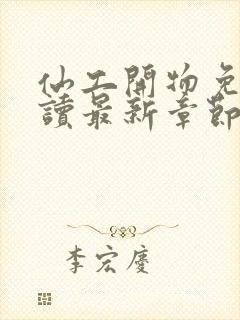 仙工開物免
讀最新章節
李宏慶